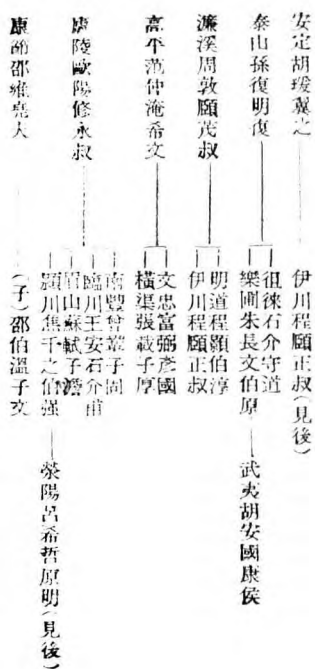 安定胡瑗翼之
伊川程頤正叔(見後)
泰山孫復明復
徂徠石介守道
樂圃朱長文伯原
武夷胡安國康侯
濂溪周敦頤茂叔
明道程顥伯淳
伊川程頤正叔
高平范仲淹希文
文忠富弼彥國
橫渠張載子厚
廬陵歐陽修永叔
南豐曾鞏子固
臨川王安石介甫
眉山蘇軾子瞻
潁川焦千之伯强
滎陽呂希哲原明(見後)
康節邵雍堯夫
(子)邵伯溫子文